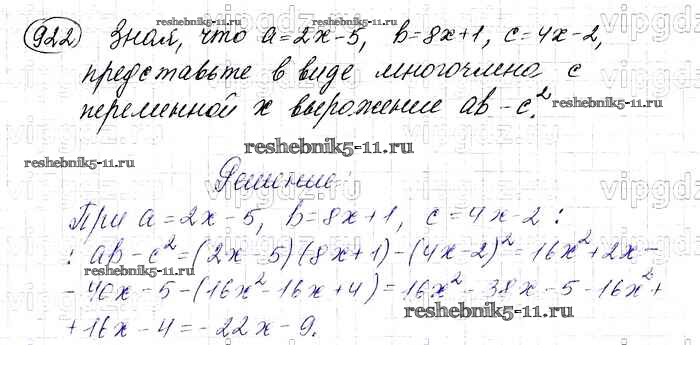 922 Зная, что a=2x-5, b=8x+1, c=4x-2,
представьте в виде многочлена с
переменной x выражение ab-c².
reshebnik5-11.ru
reshebnik5-11.ru
reshebnik5-11.ru
reshebnik5-11.ru
Решение:
При a=2x-5, b=8x+1, c=4x-2 :
: ab-c²=(2x-5)(8x+1)-(4x-2)²=16x²+2x-
reshebnik5-11.ru
-40x-5-(16x²-16x+4)=16x²-38x-5-16x²+
reshebnik5-11.ru
+16x-4=-22x-9.
vipgdz.ru
vipgdz.ru
vipgdz.ru
vipgdz.ru